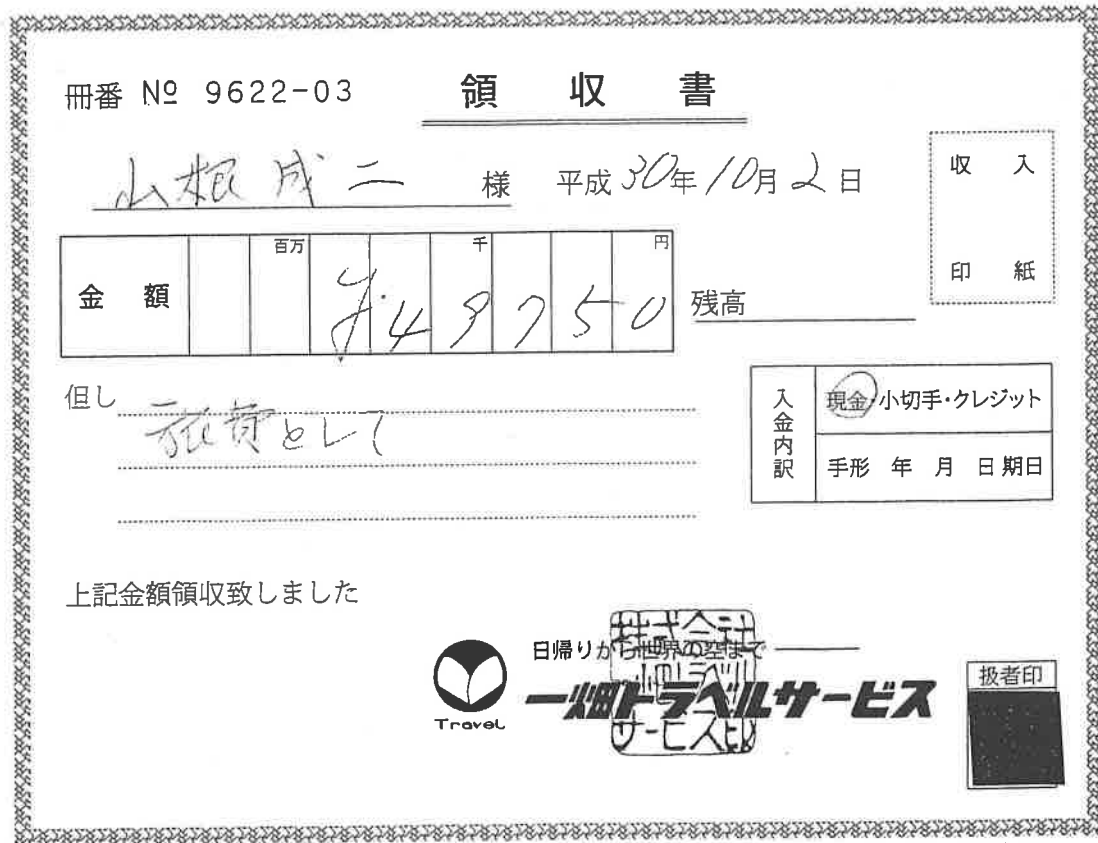 冊番 № 9622-03 領収書
山根成二 様 平成30年10月2日
収入
印紙
金額 百万 千 円
¥49750
残高
但し 旅費として
入金内訳
現金・小切手・クレジット
手形 年 月 日期日
上記金額領収致しました
日帰りから世界の空まで
Travel
一畑トラベルサービス
株式会社
サービス印
扱者印